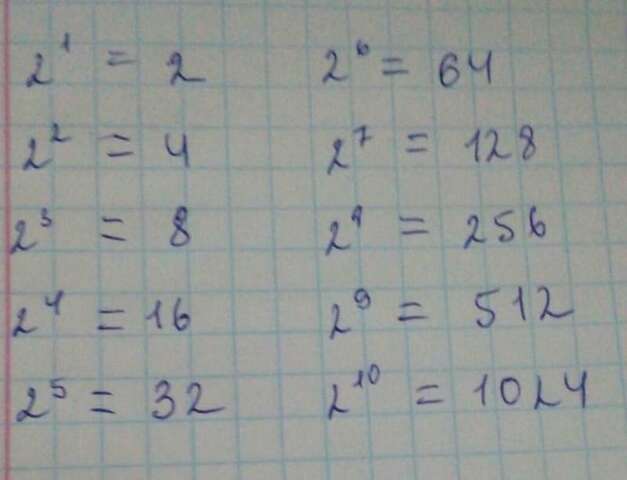 2¹ = 2
2² = 4
2³ = 8
2⁴ = 16
2⁵ = 32
2⁶ = 64
2⁷ = 128
2⁸ = 256
2⁹ = 512
2¹⁰ = 1024